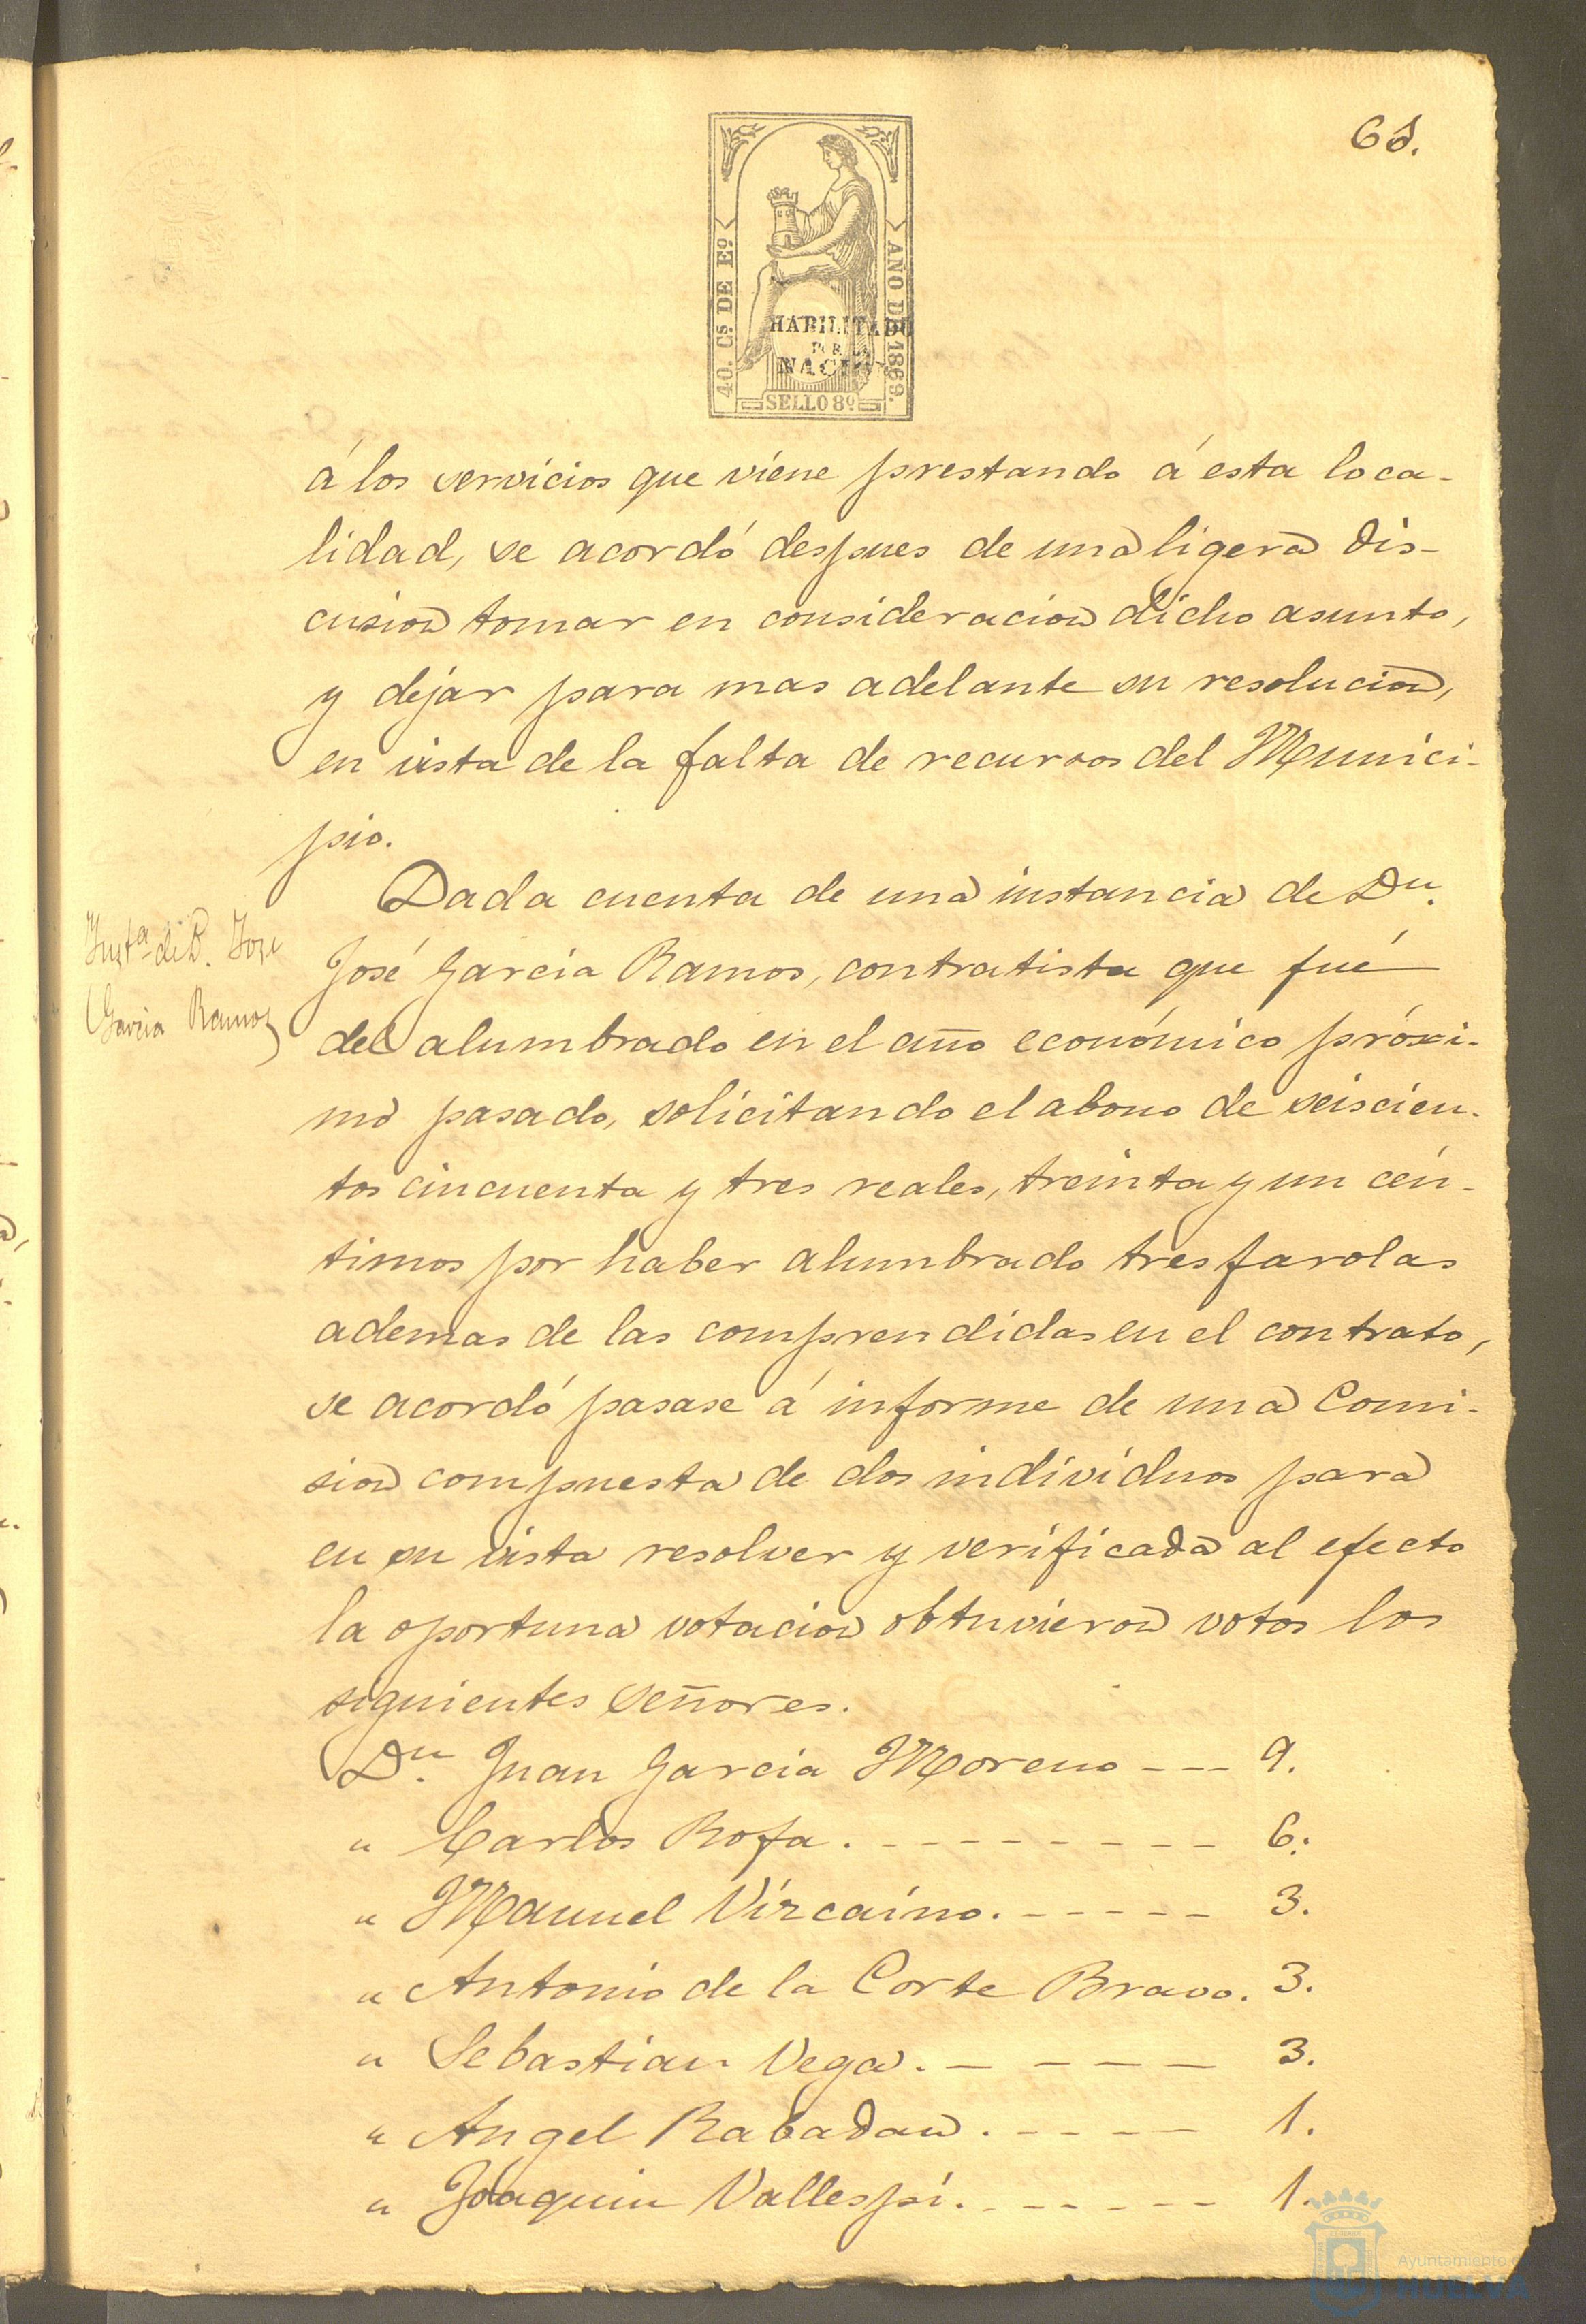 68.
40. Cs DE Eo
AÑO DE 1869.
HABILITADO
POR LA
NACION
SELLO 8º
á los servicios que viene prestando á esta loca-
lidad, se acordó despues de una ligera dis-
cusion tomar en consideracion dicho asunto,
y dejar para mas adelante su resolucion,
en vista de la falta de recursos del Munici-
pio.
Dada cuenta de una instancia de Dn.
Insta. de D. Jose
Garcia Ramos
José Garcia Ramos, contratista que fué
del alumbrado en el año económico próxi-
mo pasado, solicitando el abono de seiscien-
tos cincuenta y tres reales, treinta y un cén-
timos por haber alumbrado tres farolas
ademas de las comprendidas en el contrato,
se acordó pasase á informe de una Comi-
sion compuesta de dos individuos para
en su vista resolver y verificada al efecto
la oportuna votacion obtuvieron votos los
siguientes señores.
Dn. Juan Garcia Moreno --- 9.
" Carlos Rofa. --------- 6.
" Manuel Vizcaino. ----- 3.
" Antonio de la Corte Bravo. 3.
" Sebastian Vega. ----- 3.
" Angel Rabadan. ---- 1.
" Joaquin Vallespí. ------ 1.
Ayuntamiento
HUELVA